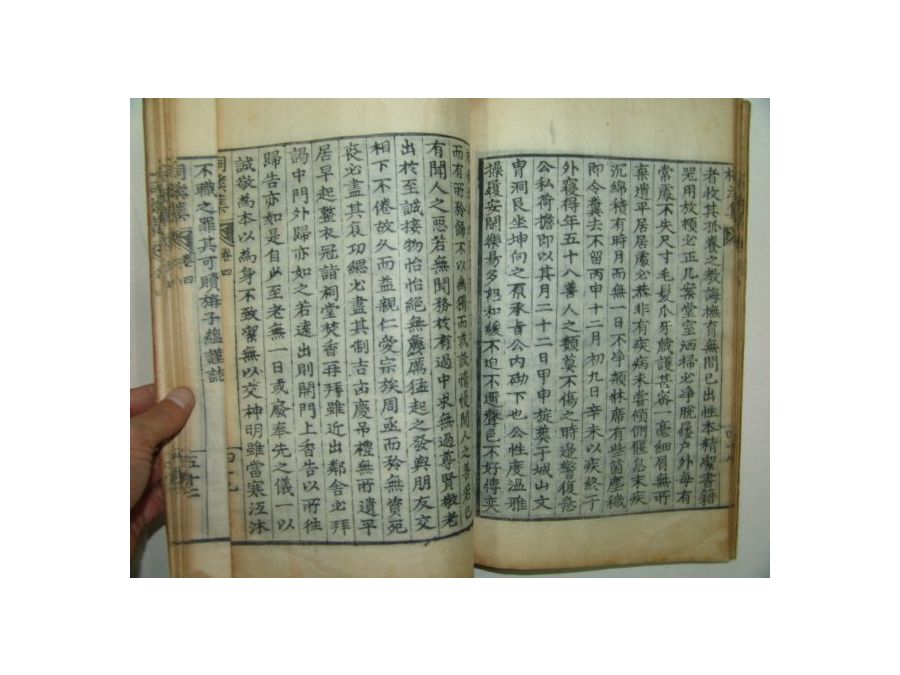 者收其孤養之教誨撫育無間已出性本精潔書籍
器用放頓必正几案堂室洒掃必淨脫屨戶外毋有
常處不失尺寸毛髮爪牙藏護甚密一毫細屑無所
棄遺平居居處必恭非有疾病未嘗傾側偃息末疾
沉綿積有時月而無一日不淨類牀席有些箇塵穢
即令糞去不留丙申十二月初九日辛未以疾終于
外寢得年五十八善人之類莫不傷之時邊警復急
公私荷擔即以其月二十二日甲申旋葬于城山文
冑洞艮坐坤向之原承旨公內砌下也公性度溫雅
操履安閒樂易多恕和緩不迫不邇聲色不好傳奕
而有所矜飾不以幽獨而或設惰慢聞人之善若己
有聞人之惡若無聞務於有過中求無過尊賢敬老
出於至誠接物怡怡絕無麁厲猛起之發與朋友交
相下不倦故久而益親仁愛宗族周亟而矜無資死
喪必盡其哀功緦必盡其制吉凶慶吊禮無所遺平
居早起整衣冠詣祠堂焚香再拜雖近出鄰舍必拜
謁中門外歸亦如之若遠出則開門上香告以所往
歸告亦如是自少至老無一日或廢奉先之儀一以
誠敬為本以為身不致潔無以交神明雖當寒沍沐
卷四
四十九
不職之罪其可贖旃子蘊謹誌
卷四